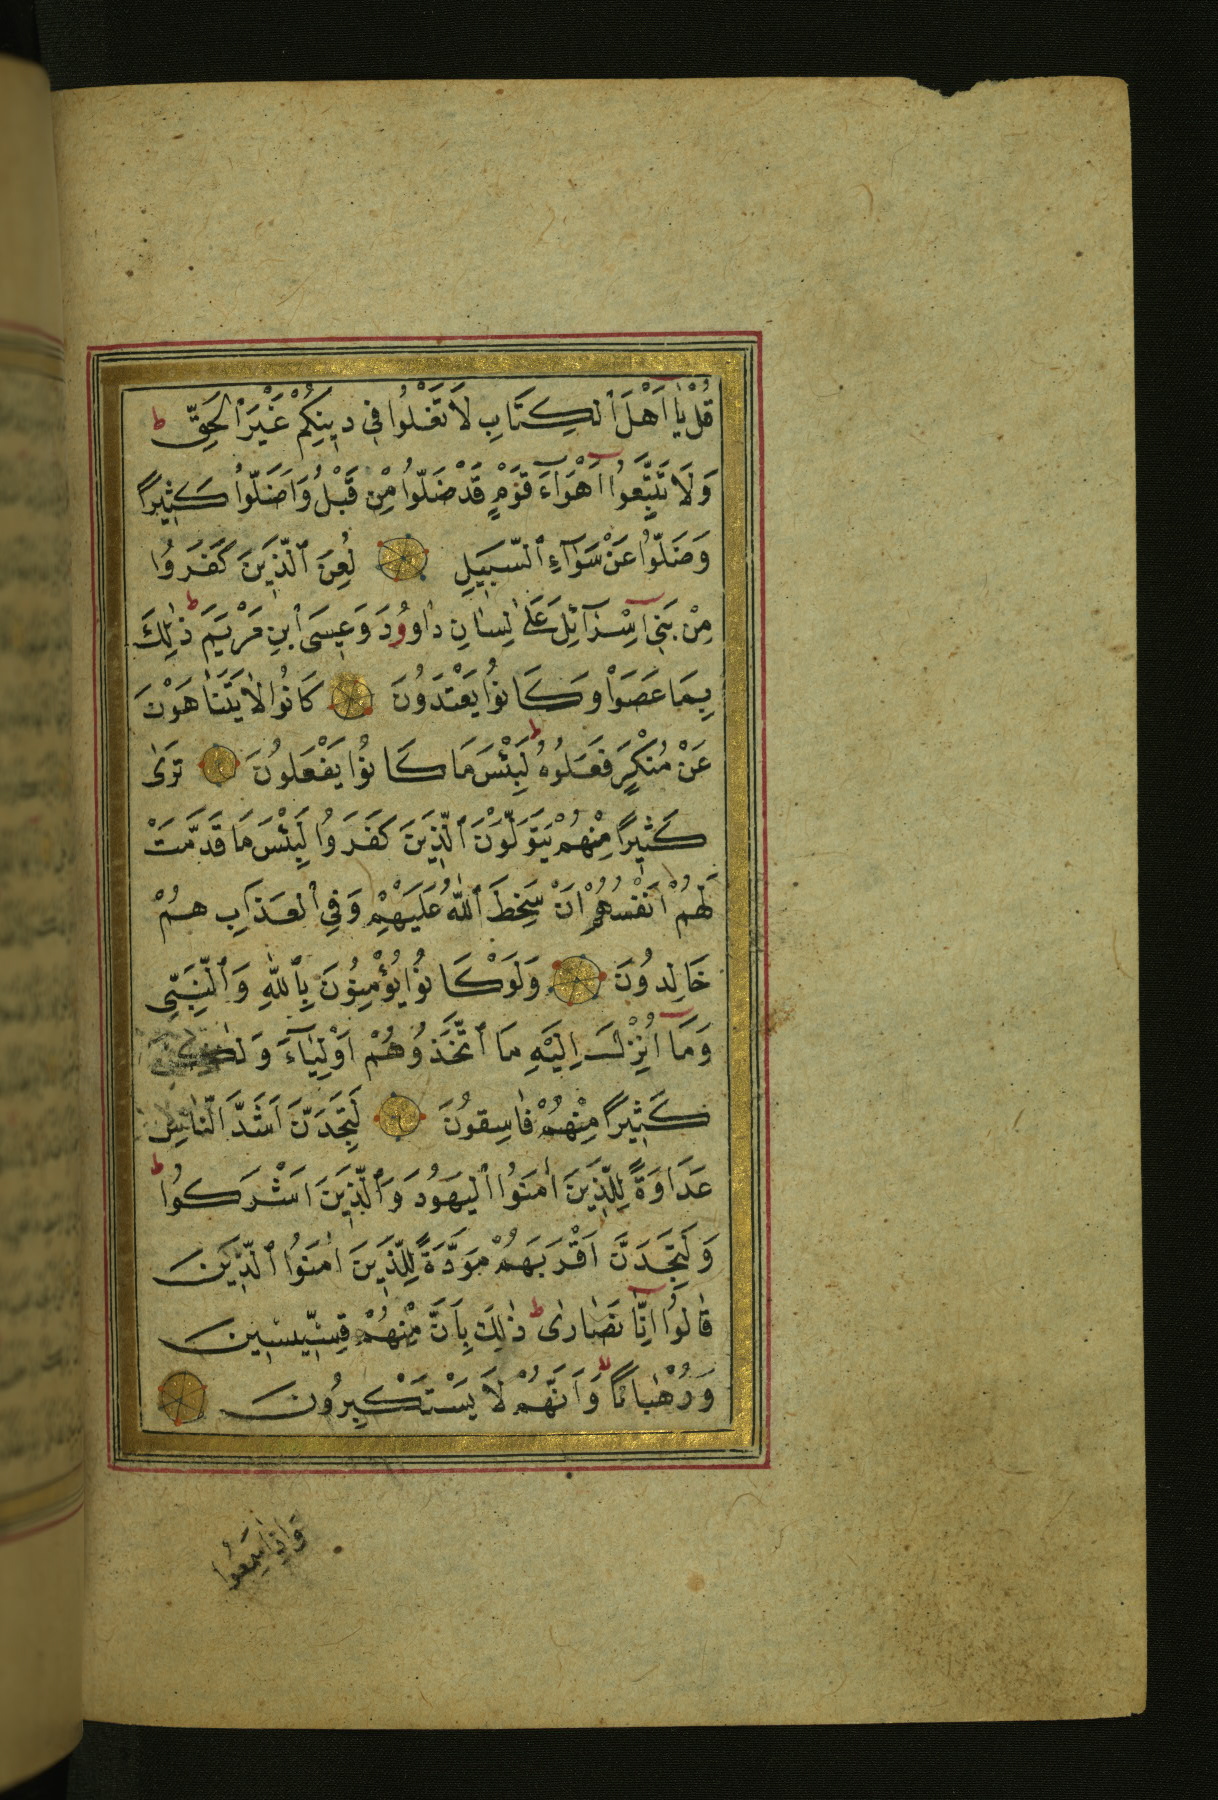 قُلْ يَٰٓا اَهْلَ ٱلْكِتَابِ لَا تَغْلُوا فِي دِينِكُمْ غَيْرَ ٱلْحَقِّ ط
وَلَا تَتَّبِعُوٓا اَهْوَآءَ قَوْمٍ قَدْ ضَلُّوا مِنْ قَبْلُ وَاَضَلُّوا كَثِيرًا
وَضَلُّوا عَنْ سَوَآءِ ٱلسَّبِيلِ لُعِنَ ٱلَّذِينَ كَفَرُوا
مِنْ بَنِيٓ اِسْرَآئِلَ عَلٰى لِسَانِ دَاوُودَ وَعِيسَى ٱبْنِ مَرْيَمَ ط ذٰلِكَ
بِمَا عَصَوْا وَكَانُوا يَعْتَدُونَ كَانُوا لَا يَتَنَاهَوْنَ
عَنْ مُنْكَرٍ فَعَلُوهُ ط لَبِئْسَ مَا كَانُوا يَفْعَلُونَ تَرٰى
كَثِيرًا مِنْهُمْ يَتَوَلَّوْنَ ٱلَّذِينَ كَفَرُوا لَبِئْسَ مَا قَدَّمَتْ
لَهُمْ اَنْفُسُهُمْ اَنْ سَخِطَ ٱللّٰهُ عَلَيْهِمْ وَفِي ٱلْعَذَابِ هُمْ
خَالِدُونَ وَلَوْ كَانُوا يُؤْمِنُونَ بِٱللّٰهِ وَٱلنَّبِيِّ
وَمَآ اُنْزِلَ اِلَيْهِ مَا ٱتَّخَذُوهُمْ اَوْلِيَآءَ وَلٰكِنَّ
كَثِيرًا مِنْهُمْ فَاسِقُونَ لَتَجِدَنَّ اَشَدَّ ٱلنَّاسِ
عَدَاوَةً لِلَّذِينَ اٰمَنُوا ٱلْيَهُودَ وَٱلَّذِينَ اَشْرَكُوا ط
وَلَتَجِدَنَّ اَقْرَبَهُمْ مَوَدَّةً لِلَّذِينَ اٰمَنُوا ٱلَّذِينَ
قَالُوٓا اِنَّا نَصَارٰى ط ذٰلِكَ بِاَنَّ مِنْهُمْ قِسِّيسِينَ
وَرُهْبَانًا لا وَاَنَّهُمْ لَا يَسْتَكْبِرُونَ
وَاِذَا سَمِعُوا